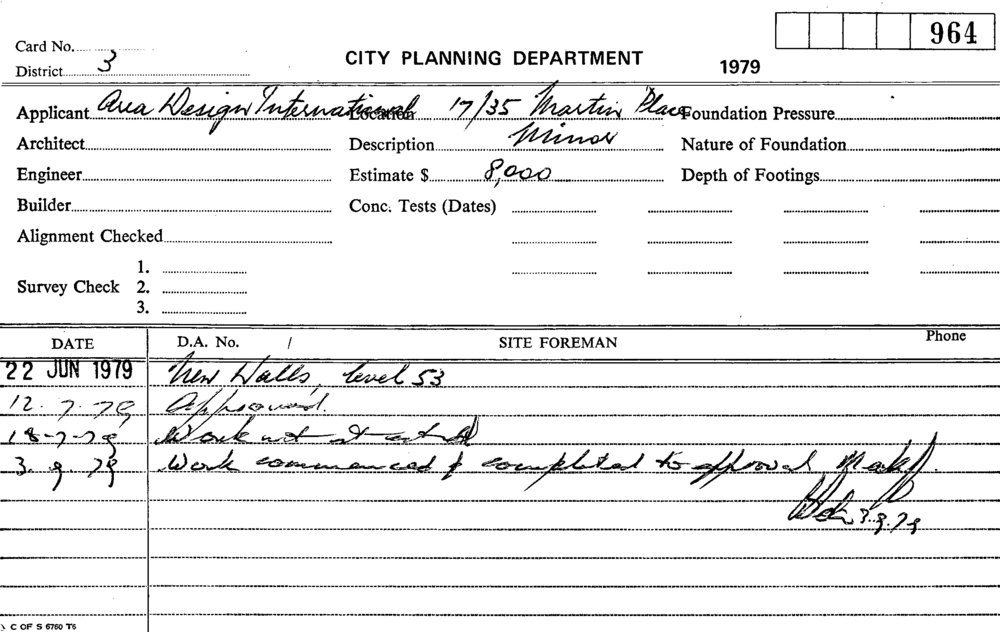 964
Card No.
CITY PLANNING DEPARTMENT
1979
District 3
Applicant Area Design International Location 17/35 Martin Place Foundation Pressure
Architect Description Minor Nature of Foundation
Engineer Estimate $ 8,000 Depth of Footings
Builder Conc. Tests (Dates)
Alignment Checked
1.
Survey Check 2.
3.
DATE D.A. No. / SITE FOREMAN Phone
22 JUN 1979 New Walls, level 53
12.7.79 Approved.
18-7-79 Work not started
3.9.79 Work commenced & completed to approval
3.9.79
C OF S 6760 T6